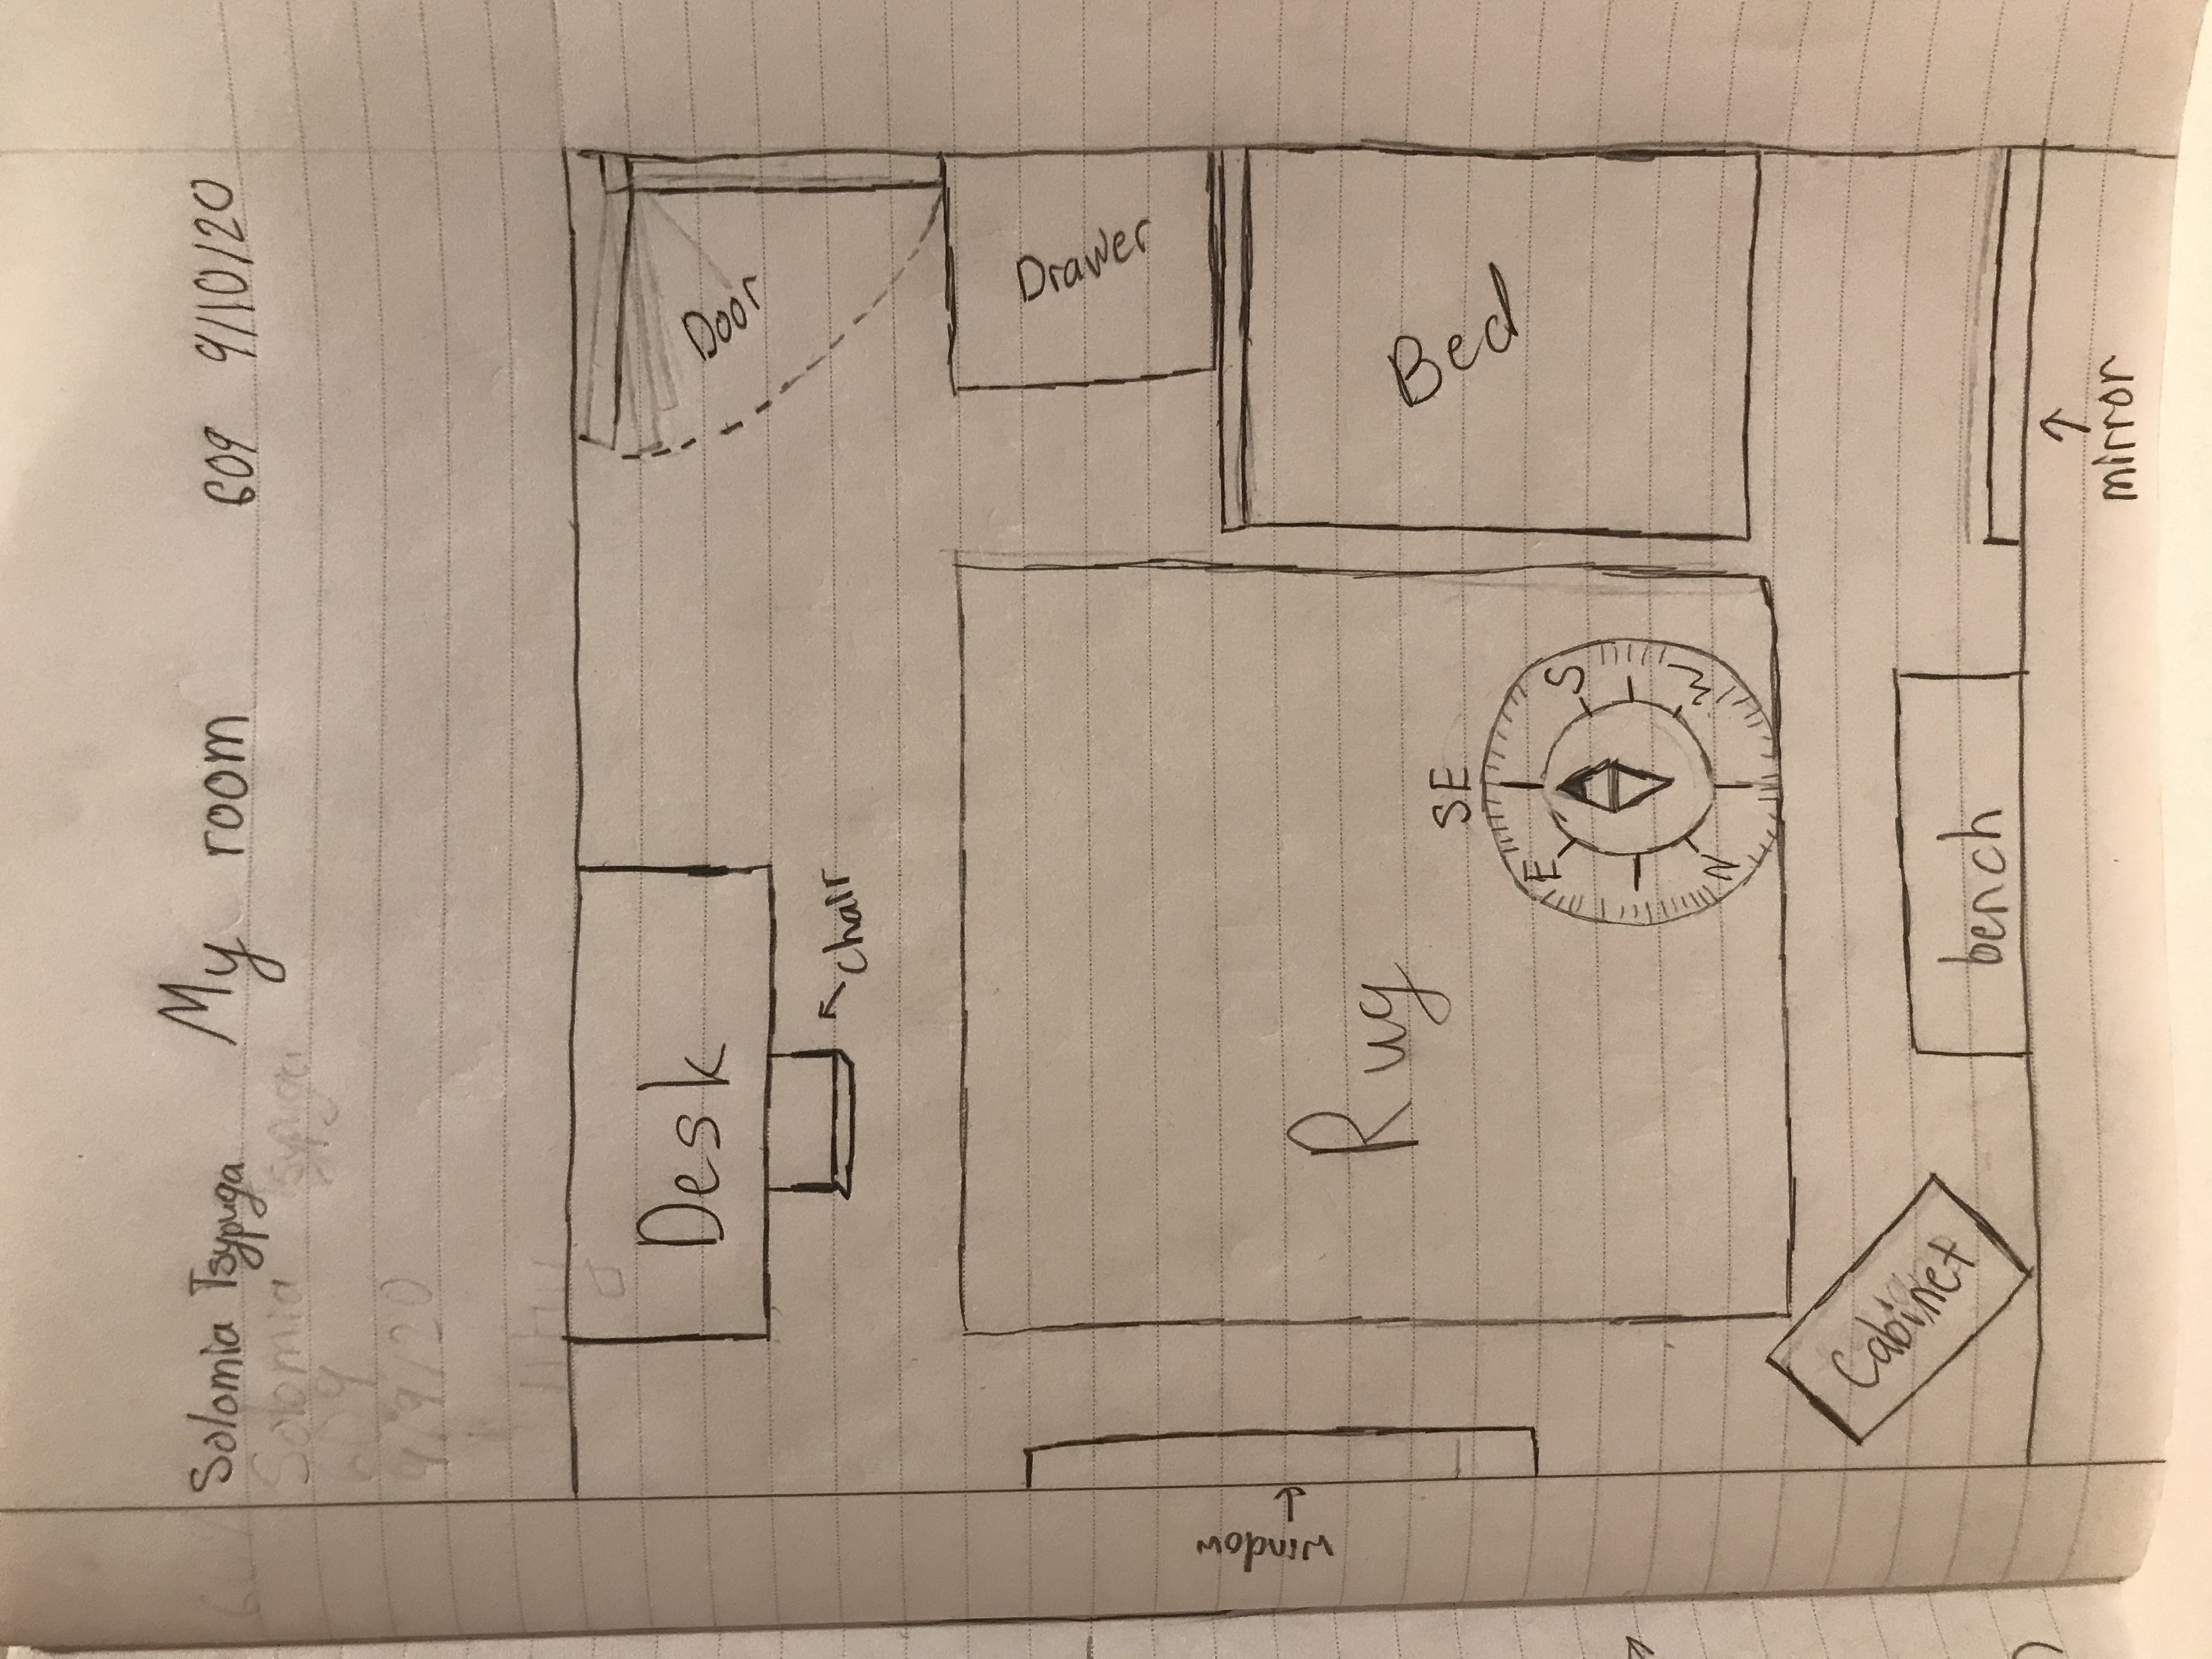 Solomia Tsypuga My room 609 9/10/20
Solomia Tsypuga
609
9/9/20
My
Desk
Door
chair
Drawer
window
Rug
Bed
SE
E S
N W
Cabinet
bench
mirror